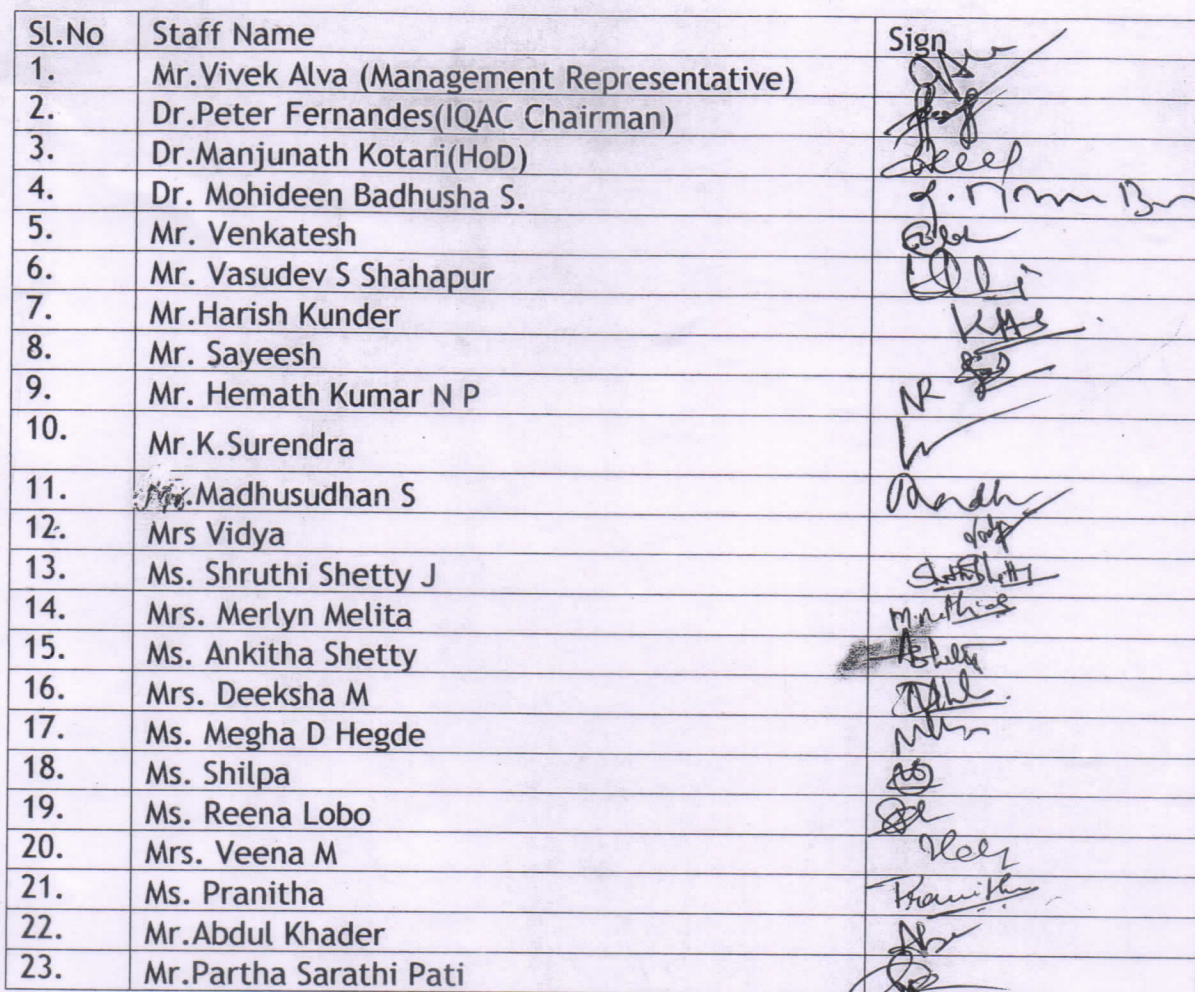 Sl.No Staff Name Sign
1. Mr.Vivek Alva (Management Representative)
2. Dr.Peter Fernandes(IQAC Chairman)
3. Dr.Manjunath Kotari(HoD)
4. Dr. Mohideen Badhusha S.
5. Mr. Venkatesh
6. Mr. Vasudev S Shahapur
7. Mr.Harish Kunder
8. Mr. Sayeesh
9. Mr. Hemath Kumar N P
10. Mr.K.Surendra
11. Madhusudhan S
12. Mrs Vidya
13. Ms. Shruthi Shetty J
14. Mrs. Merlyn Melita
15. Ms. Ankitha Shetty
16. Mrs. Deeksha M
17. Ms. Megha D Hegde
18. Ms. Shilpa
19. Ms. Reena Lobo
20. Mrs. Veena M
21. Ms. Pranitha Pranitha
22. Mr.Abdul Khader
23. Mr.Partha Sarathi Pati